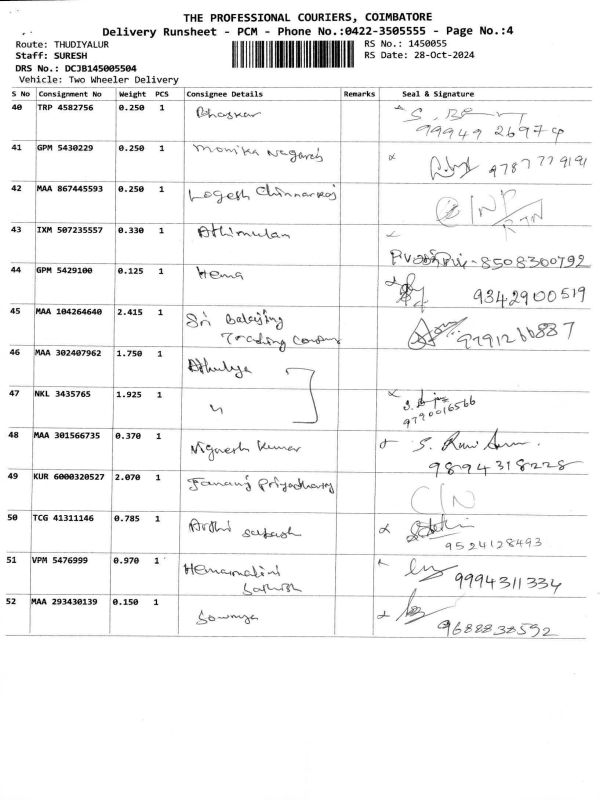 THE PROFESSIONAL COURIERS, COIMBATORE
Delivery Runsheet - PCM - Phone No.:0422-3505555 - Page No.:4
Route: THUDIYALUR RS No.: 1450055
Staff: SURESH RS Date: 28-Oct-2024
DRS No.: DCJB145005504
Vehicle: Two Wheeler Delivery
S No Consignment No Weight PCS Consignee Details Remarks Seal & Signature
40 TRP 4582756 0.250 1 Bhaskar
99949 26979
41 GPM 5430229 0.250 1 Monika Nagaraj
9787779191
42 MAA 867445593 0.250 1 Logesh Chinnarraj
RTN
43 IXM 507235557 0.330 1 Athimulan
8508300792
44 GPM 5429100 0.125 1 Hema
9342900519
45 MAA 104264640 2.415 1 Sri Balajing
Trading
46 MAA 302407962 1.750 1 Athulya
47 NKL 3435765 1.925 1 "
9790016566
48 MAA 301566735 0.370 1 Vignesh Kumar
9894318228
49 KUR 6000320527 2.070 1 Priyadharsj
C/N
50 TCG 41311146 0.785 1 Arthi
9524128493
51 VPM 5476999 0.970 1 Hemamalini
Sathish 9994311334
52 MAA 293430139 0.150 1 Sowmya
9688838592